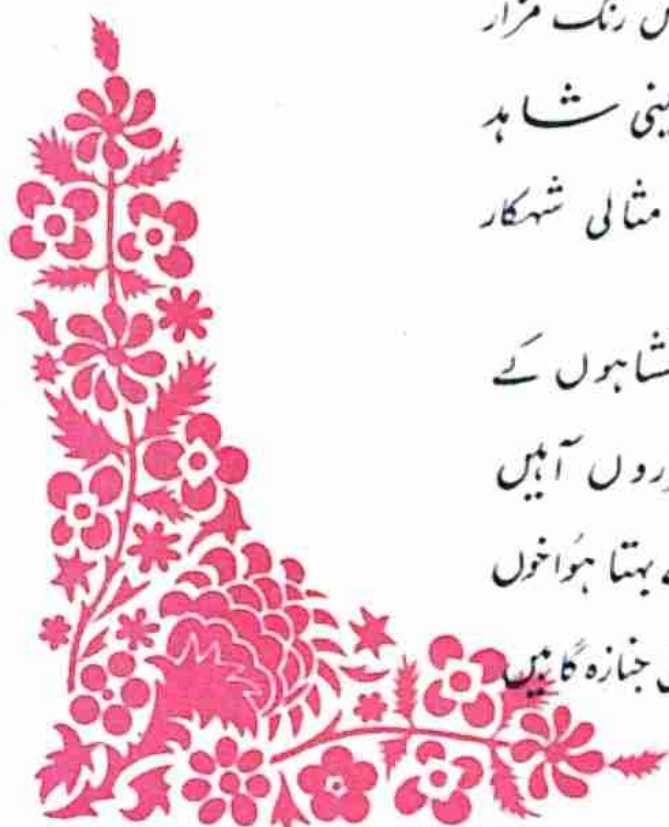 رنگ مزار
شاہد
مثالی شہکار
کے
آہیں
بہتا ہؤا خوں
جنازہ گاہیں